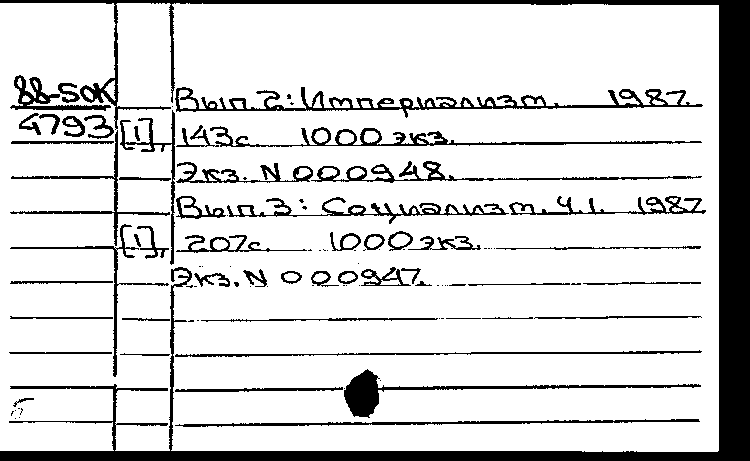 88-5ОК Вып.2: Империализм. 1987.
4793 [1], 143с 1000 экз.
Экз. N 000948.
Вып.3: Социализм. Ч.1. 1987.
[1], 207с. 1000 экз.
Экз. N 000947.
б